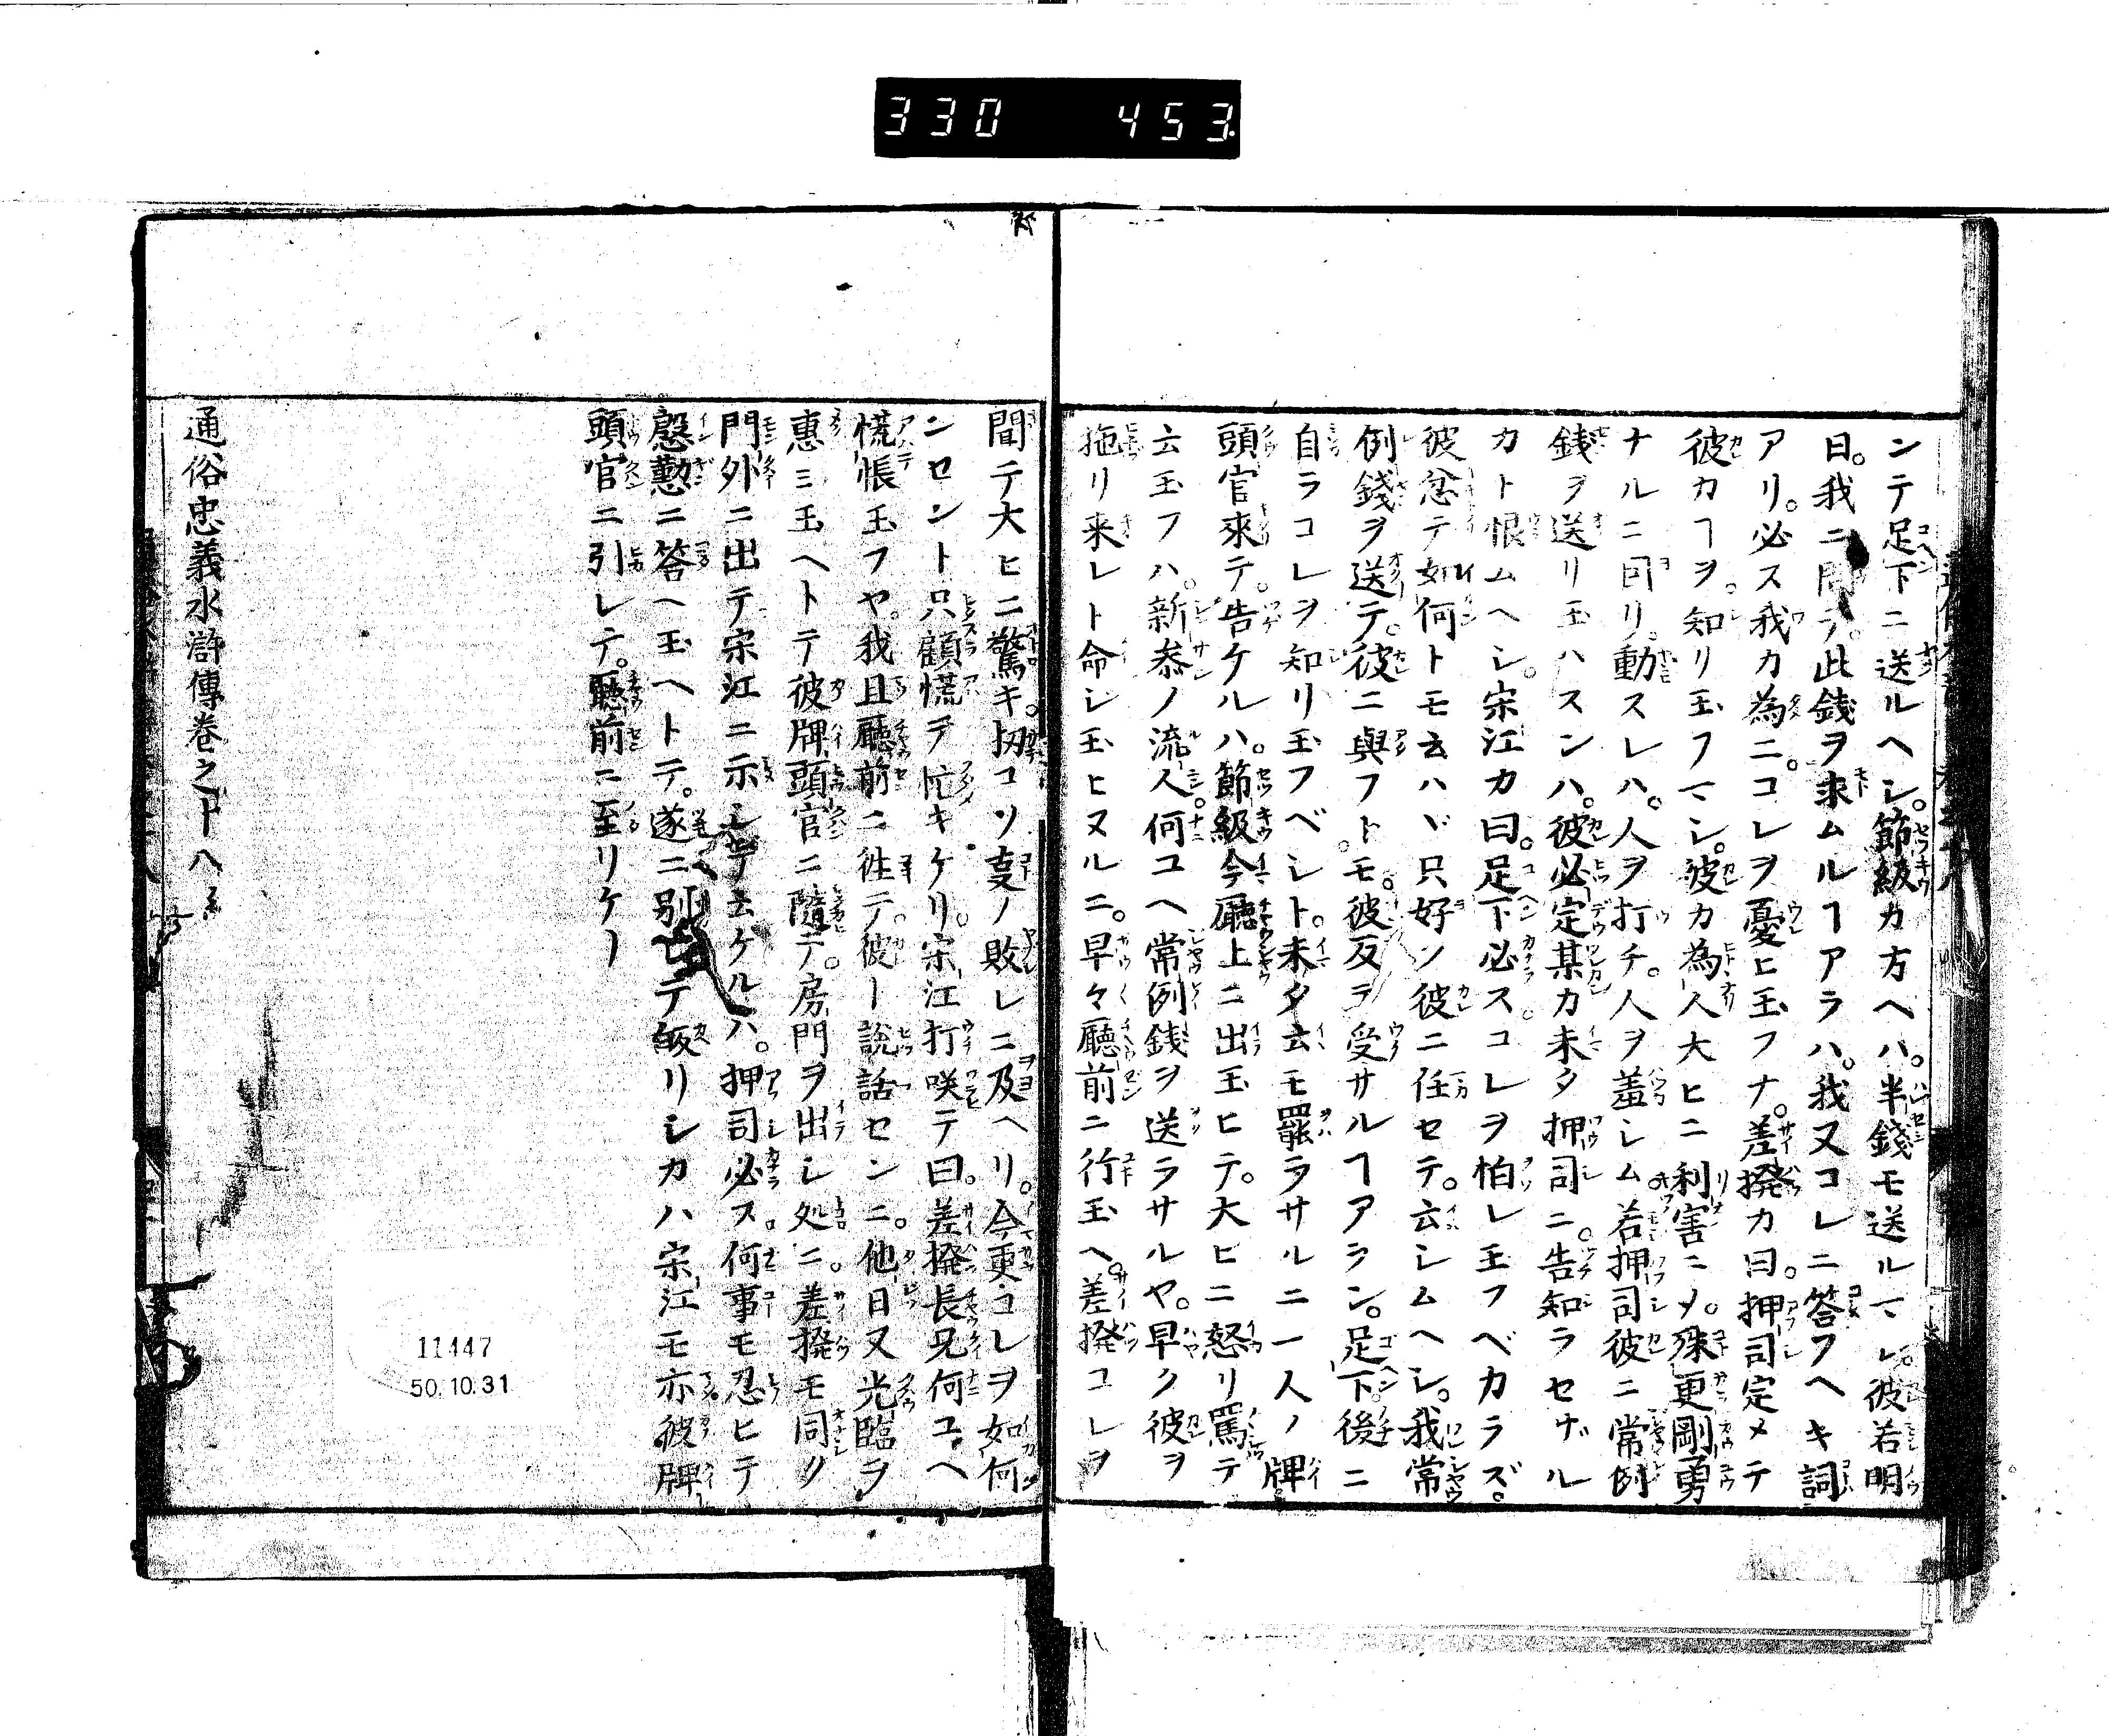 330 453
ンテ足下ニ送ルヘシ。節級カ方ヘハ。半錢モ送ルマシ。彼若明
日。我ニ問テ。此銭ヲ求ムルヿアラハ。我又コレニ答フヘキ詞
アリ。必ス我カ為ニ。コレヲ憂ヒ玉フナ。差撥カ曰。押司定メテ
彼カヿヲ。知リ玉フマシ。彼カ為人大ヒニ利害ニメ。殊更剛勇
ナルニ囙リ。動スレハ。人ヲ打チ。人ヲ羞シム若押司彼ニ常例
銭ヲ送リ玉ハスンハ。彼必定某カ未タ押司ニ。告知ラセザル
カト恨ムヘシ。宋江カ曰。足下必スコレヲ怕レ玉フベカラズ。
彼忿テ如何トモ云ハヾ只好ソ彼ニ任セテ。云シムヘシ。我常
例錢ヲ送テ。彼ニ與フトモ。彼反テ受サルヿアラン。足下後ニ
自ラコレヲ知リ玉フベシト。未タ云モ罷ラサルニ一人ノ牌
頭官來テ。告ケルハ。節級今廳上ニ出玉ヒテ。大ヒニ怒リ罵テ
云玉フハ。新参ノ流人何ユヘ常例銭ヲ送ラサルヤ。早ク彼ヲ
拖リ来レト命シ玉ヒヌルニ。早々廳前ニ行玉ヘ。差撥コレヲ
聞テ大ヒニ驚キ。扨コソ叓ノ敗レニ及ヘリ。今更コレヲ如何
ンセント只顧慌テ忙キケリ。宋江打咲テ曰。差撥長兄何ユヘ
慌悵玉フヤ。我且廳前ニ徃テ。彼ト説話センニ。他日又光臨ヲ
惠ミ玉ヘトテ彼牌頭官ニ隨テ。房門ヲ出シ処ニ。差撥モ同ク
門外ニ出テ宋江ニ示シテ云ケルハ。押司必ス。何事モ忍ヒテ
慇懃ニ答ヘ玉ヘトテ。遂ニ別テ皈リシカハ宋江モ亦彼牌
頭官ニ引レテ。廳前ニ至リケリ
通俗忠義水滸傳卷之十八終
11447
50.10.31